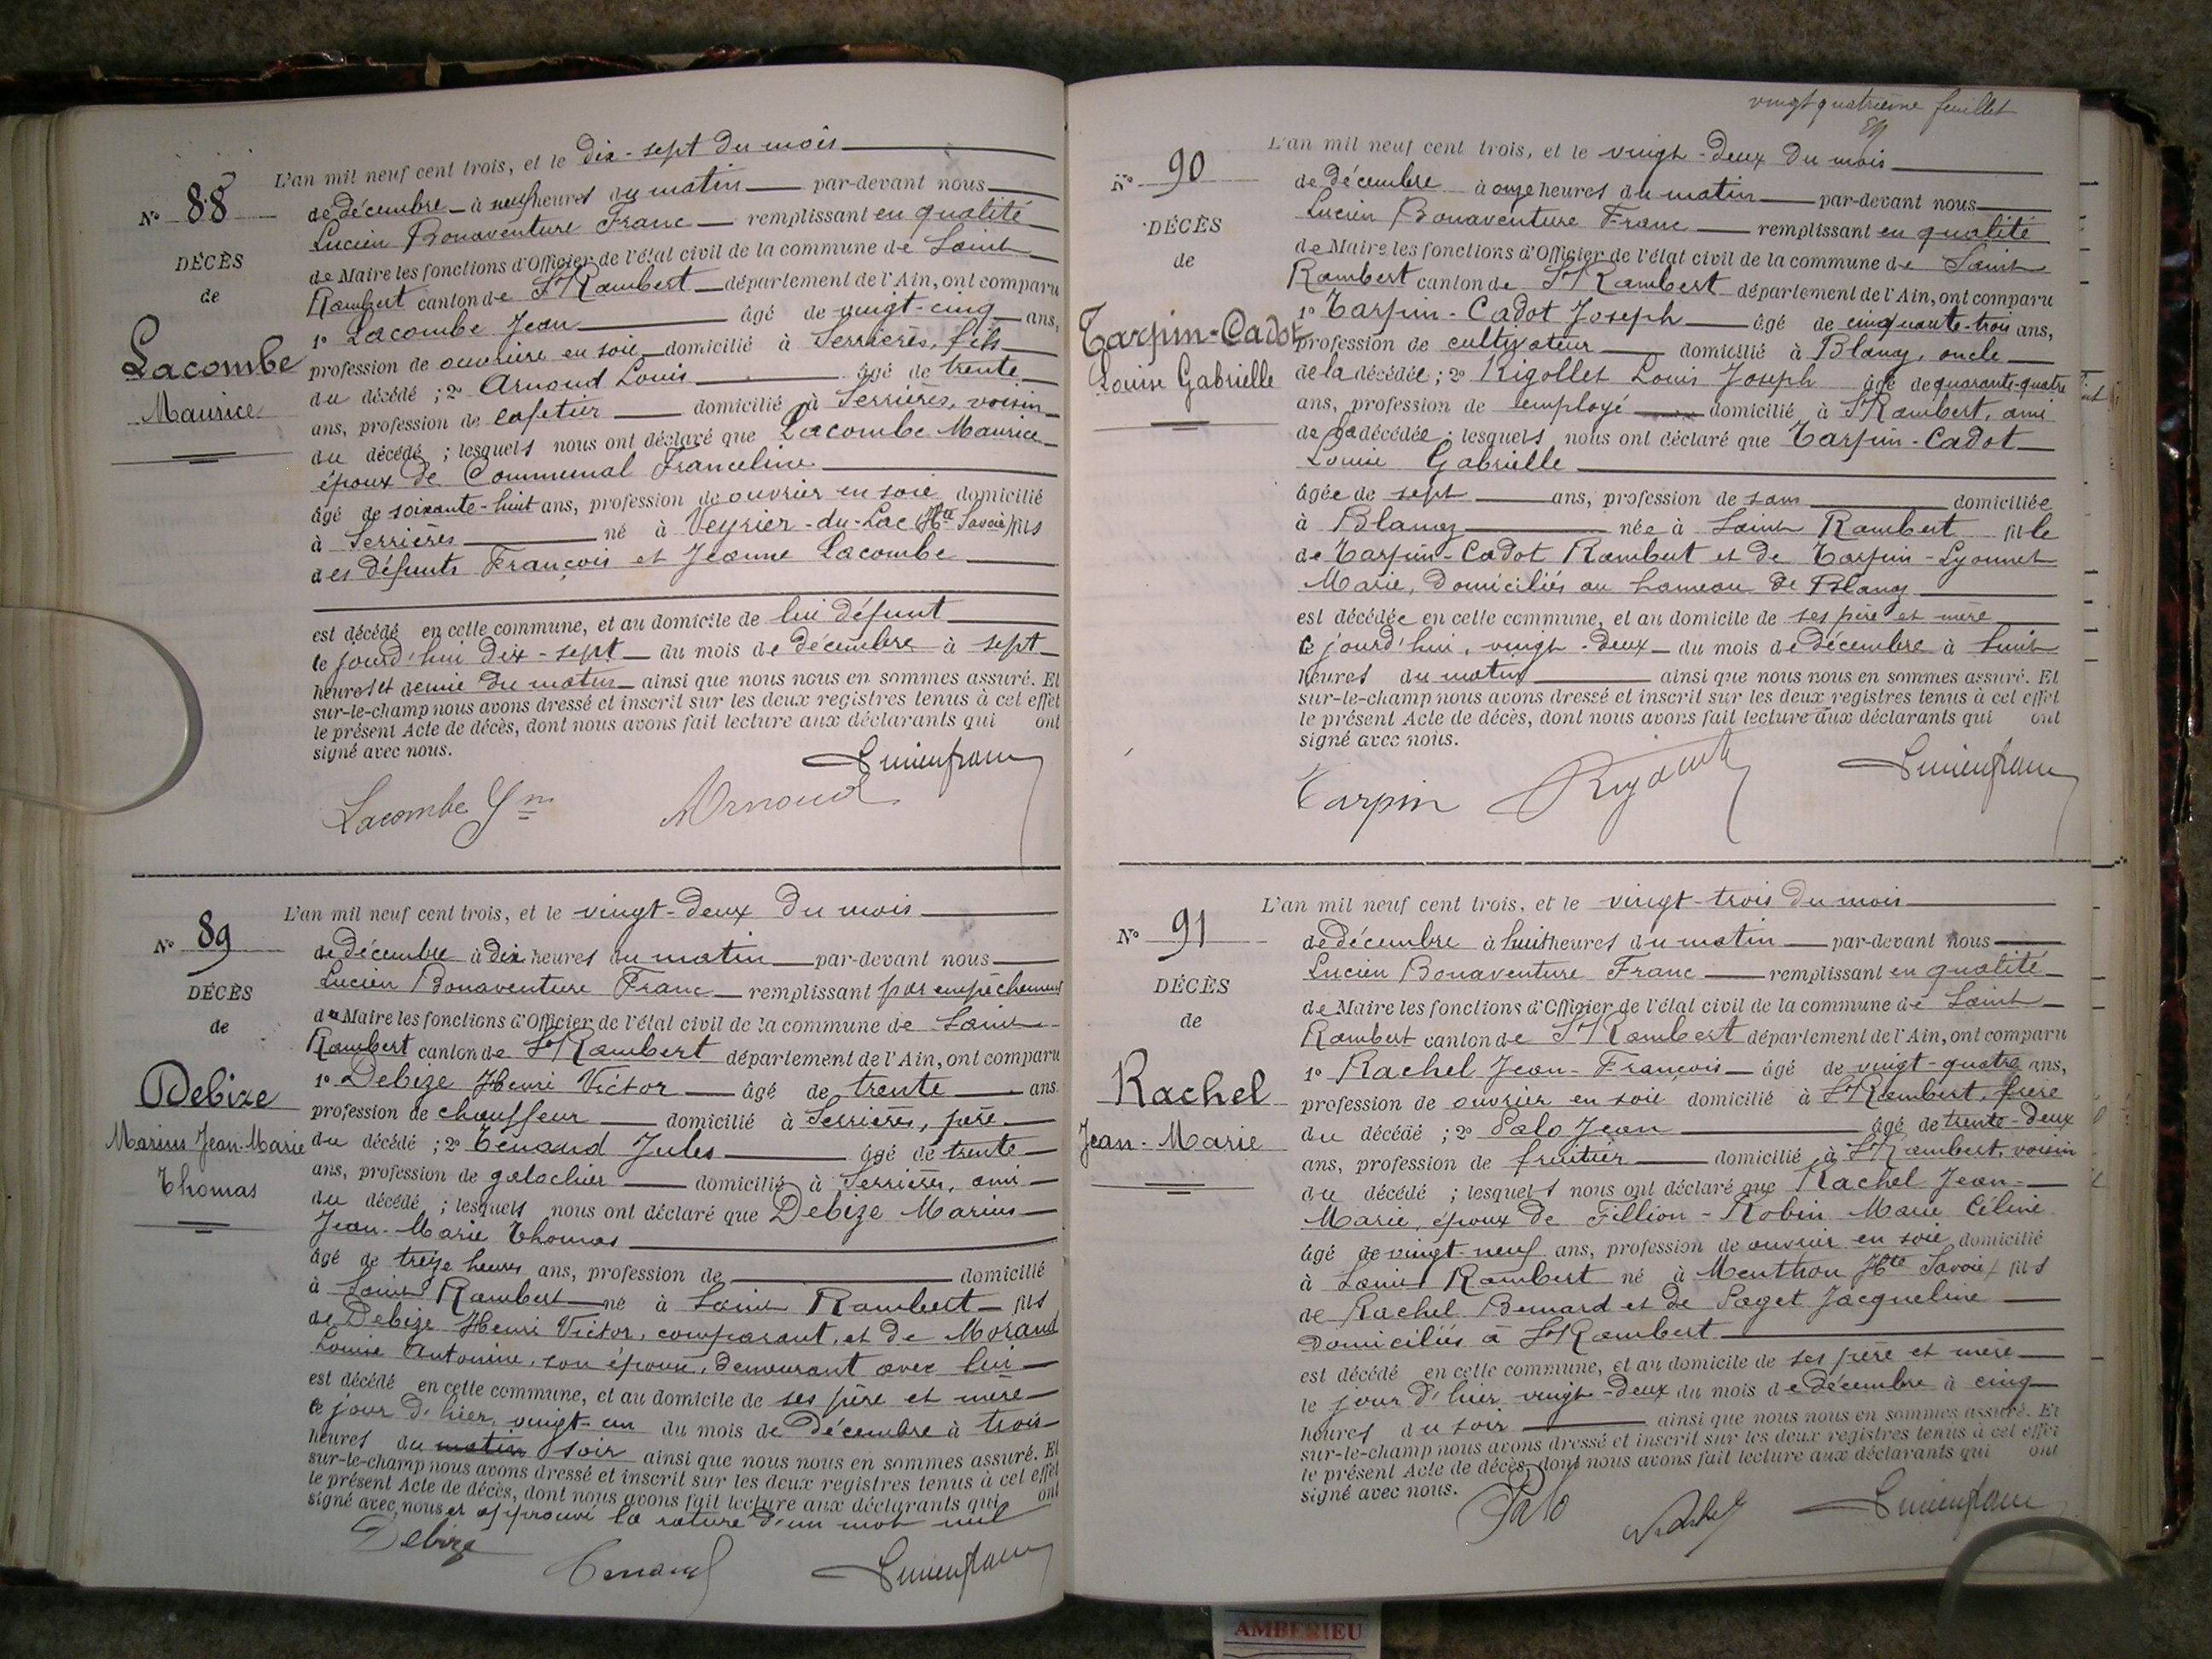 L'an mil neuf cent trois, et le dix-sept du mois
N° 88
de décembre à neuf heures du matin par-devant nous
Lucien Bonaventure Franc remplissant en qualité
DÉCÈS
de Maire les fonctions d'Officier de l'état civil de la commune de Saint
de
Rambert canton de St Rambert département de l'Ain, ont comparu
1° Lacombe Jean âgé de vingt-cinq ans,
Lacombe
profession de ouvrière en soie domicilié à Serrières, fils
Maurice
du décédé ; 2° Arnoud Louis âgé de trente
ans, profession de cafetier domicilié à Serrières, voisin
du décédé ; lesquels nous ont déclaré que Lacombe Maurice
époux de Communal Franceline
âgé de soixante-huit ans, profession de ouvrier en soie domicilié
à Serrières né à Veyrier-du-Lac (Hte Savoie) fils
des défunts François et Jeanne Lacombe
est décédé en cette commune, et au domicile de lui défunt
le jourd'hui dix-sept du mois de décembre à sept
heures et demie du matin ainsi que nous nous en sommes assuré. Et
sur-le-champ nous avons dressé et inscrit sur les deux registres tenus à cet effet
le présent Acte de décès, dont nous avons fait lecture aux déclarants qui ont
signé avec nous.
Lucien franc
Lacombe Jn Arnoud
L'an mil neuf cent trois, et le vingt-deux du mois
N° 89
de décembre à dix heures du matin par-devant nous
Lucien Bonaventure Franc remplissant par empêchement
DÉCÈS
du Maire les fonctions d'Officier de l'état civil de la commune de Saint
de
Rambert canton de St Rambert département de l'Ain, ont comparu
1° Debize Henri Victor âgé de trente ans
Debize
profession de chauffeur domicilié à Serrières, père
Marius Jean-Marie
du décédé ; 2° Tenand Jules âgé de trente
Thomas
ans, profession de galochier domicilié à Serrières, ami
du décédé ; lesquels nous ont déclaré que Debize Marius
Jean-Marie Thomas
âgé de treize heures ans, profession de domicilié
à Saint Rambert né à Saint Rambert fils
de Debize Henri Victor, comparant, et de Morand
Louise Antonine, son épouse, demeurant avec lui
est décédé en cette commune, et au domicile de ses père et mère
le jour d'hier, vingt-un du mois de décembre à trois
heures du matin soir ainsi que nous nous en sommes assuré. Et
sur-le-champ nous avons dressé et inscrit sur les deux registres tenus à cet effet
le présent Acte de décès, dont nous avons fait lecture aux déclarants qui ont
signé avec nous et approuvé la rature d'un mot nul
Debize
Tenand Lucien franc
vingt quatrième feuillet
L'an mil neuf cent trois, et le vingt-deux du mois
N° 90
de décembre à onze heures du matin par-devant nous
Lucien Bonaventure Franc remplissant en qualité
DÉCÈS
de Maire les fonctions d'Officier de l'état civil de la commune de Saint
de
Rambert canton de St Rambert département de l'Ain, ont comparu
1° Tarpin-Cadot Joseph âgé de cinquante-trois ans,
Tarpin-Cadot
profession de cultivateur domicilié à Blanaz, oncle
Louise Gabrielle
de la décédée ; 2° Rigollet Louis Joseph âgé de quarante-quatre
ans, profession de employé domicilié à St Rambert, ami
de la décédée ; lesquels nous ont déclaré que Tarpin-Cadot
Louise Gabrielle
âgée de sept ans, profession de sans domiciliée
à Blanaz née à Saint Rambert fille
de Tarpin-Cadot Rambert et de Tarpin-Lyonnet
Marie, domiciliés au hameau de Blanaz
est décédée en cette commune, et au domicile de ses père et mère
le jourd'hui, vingt-deux du mois de décembre à huit
heures du matin ainsi que nous nous en sommes assuré. Et
sur-le-champ nous avons dressé et inscrit sur les deux registres tenus à cet effet
le présent Acte de décès, dont nous avons fait lecture aux déclarants qui ont
signé avec nous.
Tarpin Lucien franc
L'an mil neuf cent trois, et le vingt-trois du mois
N° 91
de décembre à huit heures du matin par-devant nous
Lucien Bonaventure Franc remplissant en qualité
DÉCÈS
de Maire les fonctions d'Officier de l'état civil de la commune de Saint
de
Rambert canton de St Rambert département de l'Ain, ont comparu
1° Rachel Jean-François âgé de vingt-quatre ans,
Rachel
profession de ouvrier en soie domicilié à St Rambert, frère
Jean-Marie
du décédé ; 2° Palo Jean âgé de trente-deux
ans, profession de fruitier domicilié à St Rambert, voisin
du décédé ; lesquels nous ont déclaré que Rachel Jean-
Marie, époux de Fillion-Robin Marie Céline
âgé de vingt-neuf ans, profession de ouvrier en soie domicilié
à Saint Rambert né à Menthon Hte Savoie) fils
de Rachel Bernard et de Paget Jacqueline
domiciliés à St Rambert
est décédé en cette commune, et au domicile de ses père et mère
le jour d'hier vingt-deux du mois de décembre à cinq
heures du soir ainsi que nous nous en sommes assuré. Et
sur-le-champ nous avons dressé et inscrit sur les deux registres tenus à cet effet
le présent Acte de décès, dont nous avons fait lecture aux déclarants qui ont
signé avec nous.
Palo Lucien franc
AMBERIEU